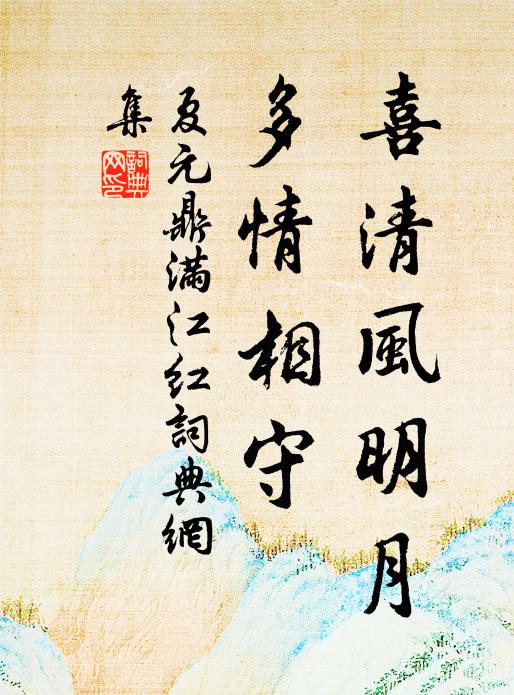 喜清風明月
多情相守
夏元鼎滿江紅詞典網
集
詞典
网印